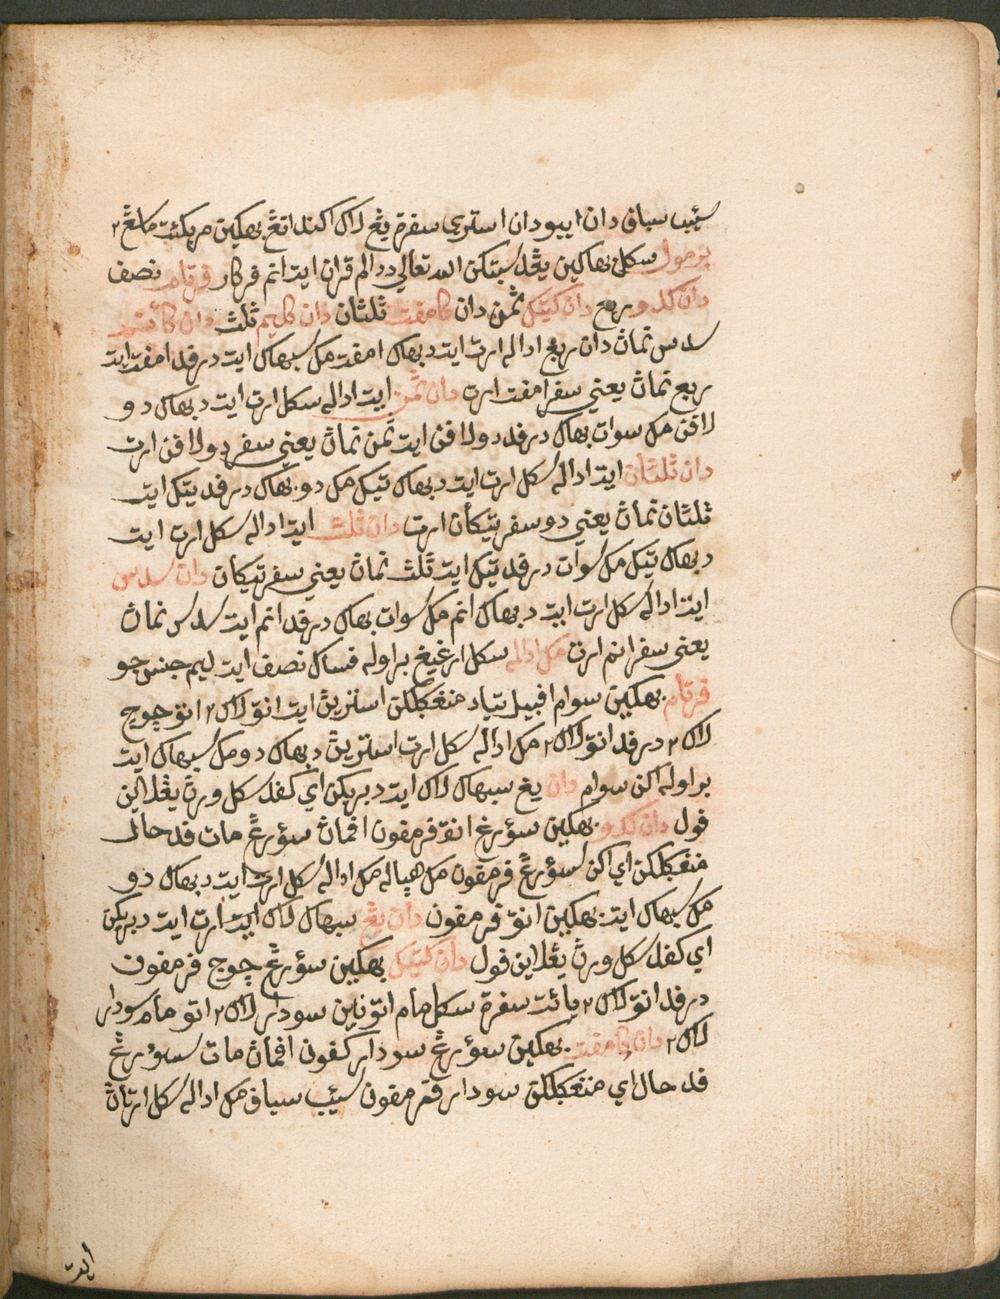 سئيب سباڬي دان ايبو دان استري سفرة يڠ لاکي اکندا تڠ بهکين مريکئت ماسڠ٢
برمول سکل بهاکين يڠد سبتکن الله تعالى ددالم قران ايت انم فرکار فرتام نصف
دان کدو ربع دان کتيک ثمن دان کامفت ثلثان دان کليم ثلث دان کانم
سدس نمان دان ربع اداله ارت ايت دبهاکي امفت مک سبهاکي ايت درفد امفت ايت
ربع نمان يعني سفرامفت ارت دان ثمن ايت اداله سکل ارت ايت دبهاکي دو
لافن مک سوات بهاکي درفد دولافن ايت ثمن نمان يعني سفر دولافن ارت
دان ثلثان ايت اداله سکل ارت ايت دبهاکي تيک مک دو بهاکي درفد تيک ايت
ثلثان نمان يعني دو سفرتيکان ارت دان ثلث ايت اداله سکل ارت ايت
دبهاکي تيک مک سوات درفد تيک ايت ثلث نمان يعني سفرتيکان دان سدس
ايت اداله سکل ارت ايت دبهاکي انم مک سوات بهاکي درفد انم ايت سدس نمان
يعني سفرانم ارت مک اداله سکل ارغيڠ براوله فساک نصف ايت ليم جنس جو
فرتام بهکين سوام افبيل تياد منڠݢلکن استرين ايت انق لاکي٢ اتو چوچ
لاکي٢ درفد انق لاکي٢ مک اداله سکل ارت استرين دبهاکي دو مک سبهاکي ايت
براوله اکن سوام دان يڠ سبهاکي لاکي ايت دبريکن اي کفد سکل ورث يڠلاين
فول دان کدو بهکين سؤرڠ انق فرمفون افمان سؤرڠ مات فد حال
منڠݢلکن اي اکن سؤرڠ فرمفون مک اداله سکل ارت ايت دبهاکي دو
مک سبهاکي ايت بهکين انق فرمفون دان يڠ سبهاکي لاکي ايت ارت ايت دبريکن
اي کفد سکل ورث يڠلاين فول دان کتيک بهکين سؤرڠ چوچ فرمفون
درفد انق لاکي٢ سفرة سکل مام اتو نين سودار لاکي٢ اتو مام سودار
لاکي٢ دان کامفت بهکين سؤرڠ سودار فرمفون افمان مات سؤرڠ
فد حال اي منڠݢلکن سودار فرمفون سئيب سباڬي مک اداله سکل ارتان
ايت